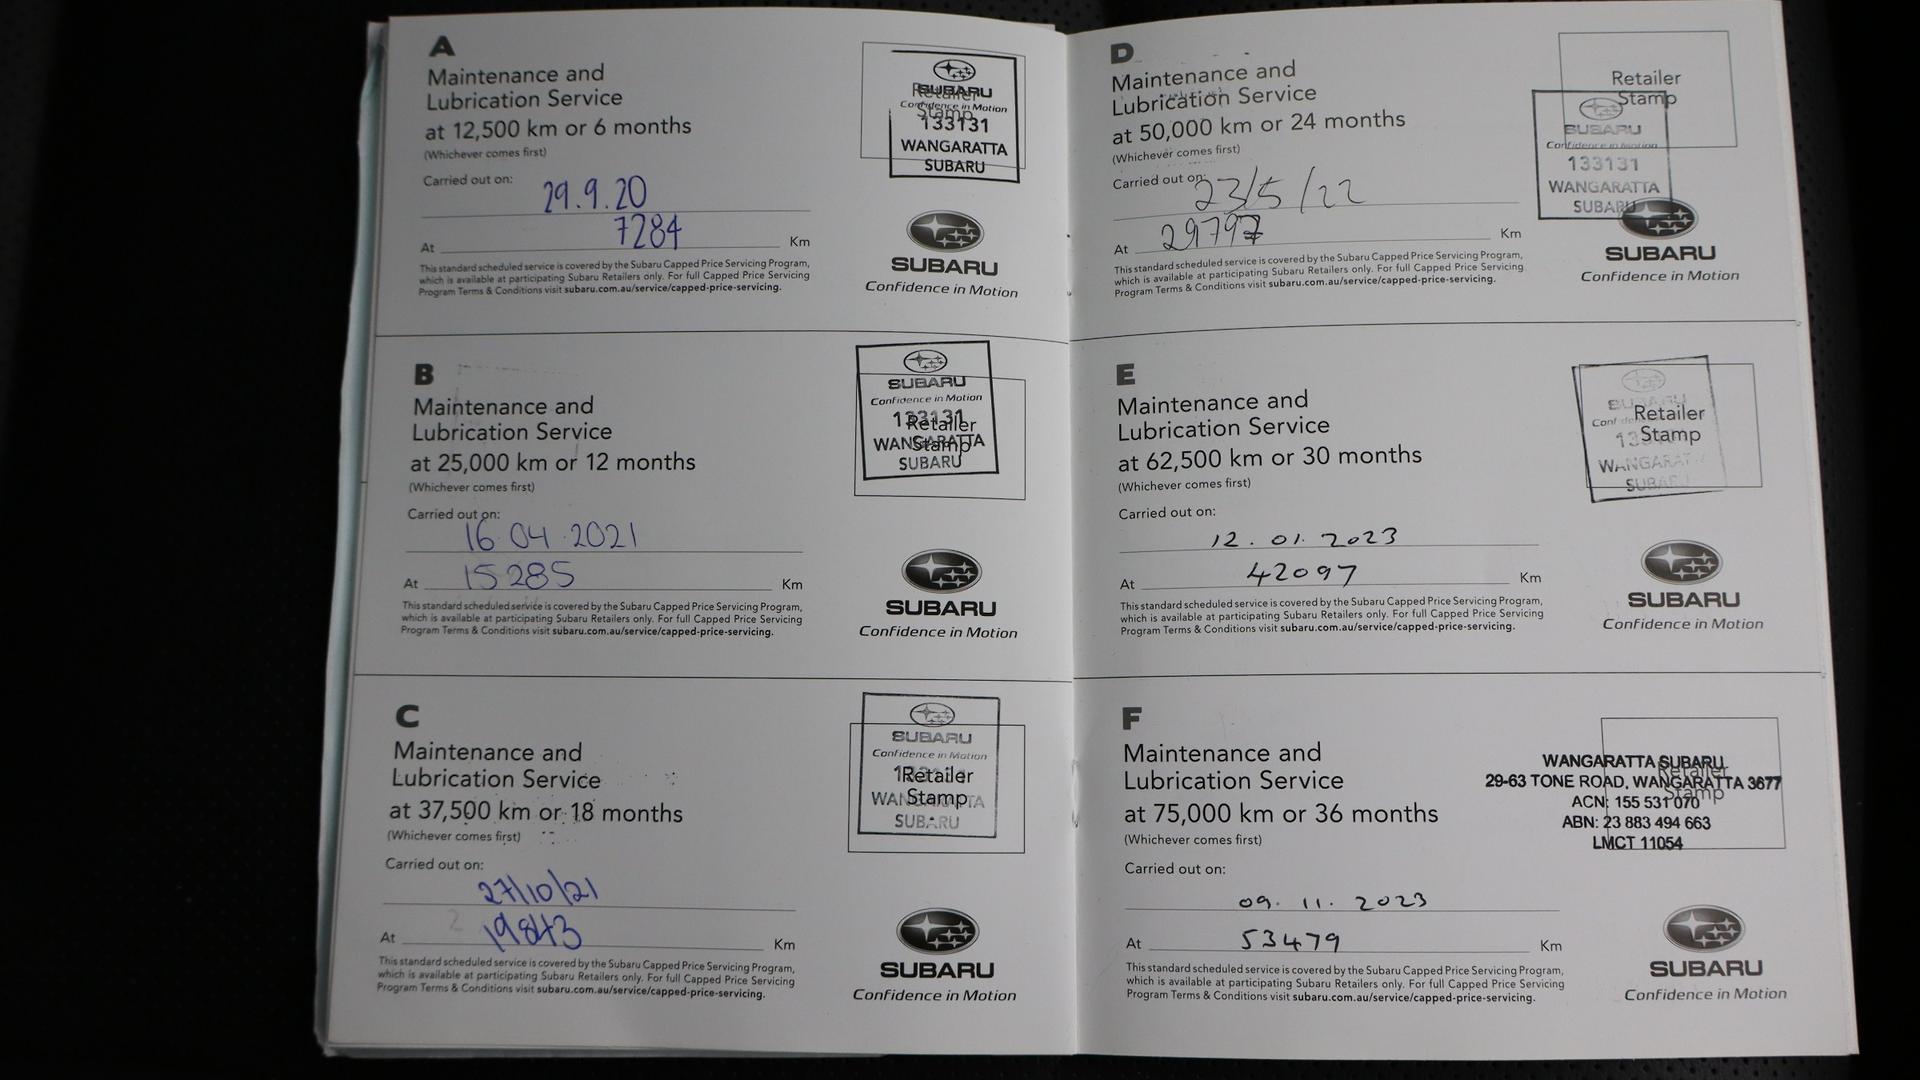 A
Maintenance and
Lubrication Service
at 12,500 km or 6 months
(Whichever comes first)
Carried out on:
29.9.20
At 7284 Km
This standard scheduled service is covered by the Subaru Capped Price Servicing Program,
which is available at participating Subaru Retailers only. For full Capped Price Servicing
Program Terms & Conditions visit subaru.com.au/service/capped-price-servicing.
Retailer
Stamp
SUBARU
Confidence in Motion
133131
WANGARATTA
SUBARU
SUBARU
Confidence in Motion
B
Maintenance and
Lubrication Service
at 25,000 km or 12 months
(Whichever comes first)
Carried out on:
16.04.2021
At 15285 Km
This standard scheduled service is covered by the Subaru Capped Price Servicing Program,
which is available at participating Subaru Retailers only. For full Capped Price Servicing
Program Terms & Conditions visit subaru.com.au/service/capped-price-servicing.
SUBARU
Confidence in Motion
133131
Retailer
WANGARATTA
Stamp
SUBARU
SUBARU
Confidence in Motion
C
Maintenance and
Lubrication Service
at 37,500 km or 18 months
(Whichever comes first)
Carried out on:
27/10/21
At 19843 Km
This standard scheduled service is covered by the Subaru Capped Price Servicing Program,
which is available at participating Subaru Retailers only. For full Capped Price Servicing
Program Terms & Conditions visit subaru.com.au/service/capped-price-servicing.
SUBARU
Confidence in Motion
Retailer
Stamp
WANGARATTA
SUBARU
SUBARU
Confidence in Motion
D
Maintenance and
Lubrication Service
at 50,000 km or 24 months
(Whichever comes first)
Carried out on:
23/5/22
At 29797 Km
This standard scheduled service is covered by the Subaru Capped Price Servicing Program,
which is available at participating Subaru Retailers only. For full Capped Price Servicing
Program Terms & Conditions visit subaru.com.au/service/capped-price-servicing.
Retailer
Stamp
SUBARU
Confidence in Motion
133131
WANGARATTA
SUBARU
SUBARU
Confidence in Motion
E
Maintenance and
Lubrication Service
at 62,500 km or 30 months
(Whichever comes first)
Carried out on:
12.01.2023
At 42097 Km
This standard scheduled service is covered by the Subaru Capped Price Servicing Program,
which is available at participating Subaru Retailers only. For full Capped Price Servicing
Program Terms & Conditions visit subaru.com.au/service/capped-price-servicing.
SUBARU
Retailer
Stamp
WANGARATTA
SUBARU
SUBARU
Confidence in Motion
F
Maintenance and
Lubrication Service
at 75,000 km or 36 months
(Whichever comes first)
Carried out on:
09.11.2023
At 53479 Km
This standard scheduled service is covered by the Subaru Capped Price Servicing Program,
which is available at participating Subaru Retailers only. For full Capped Price Servicing
Program Terms & Conditions visit subaru.com.au/service/capped-price-servicing.
Retailer
Stamp
WANGARATTA SUBARU
29-63 TONE ROAD, WANGARATTA 3677
ACN: 155 531 070
ABN: 23 883 494 663
LMCT 11054
SUBARU
Confidence in Motion